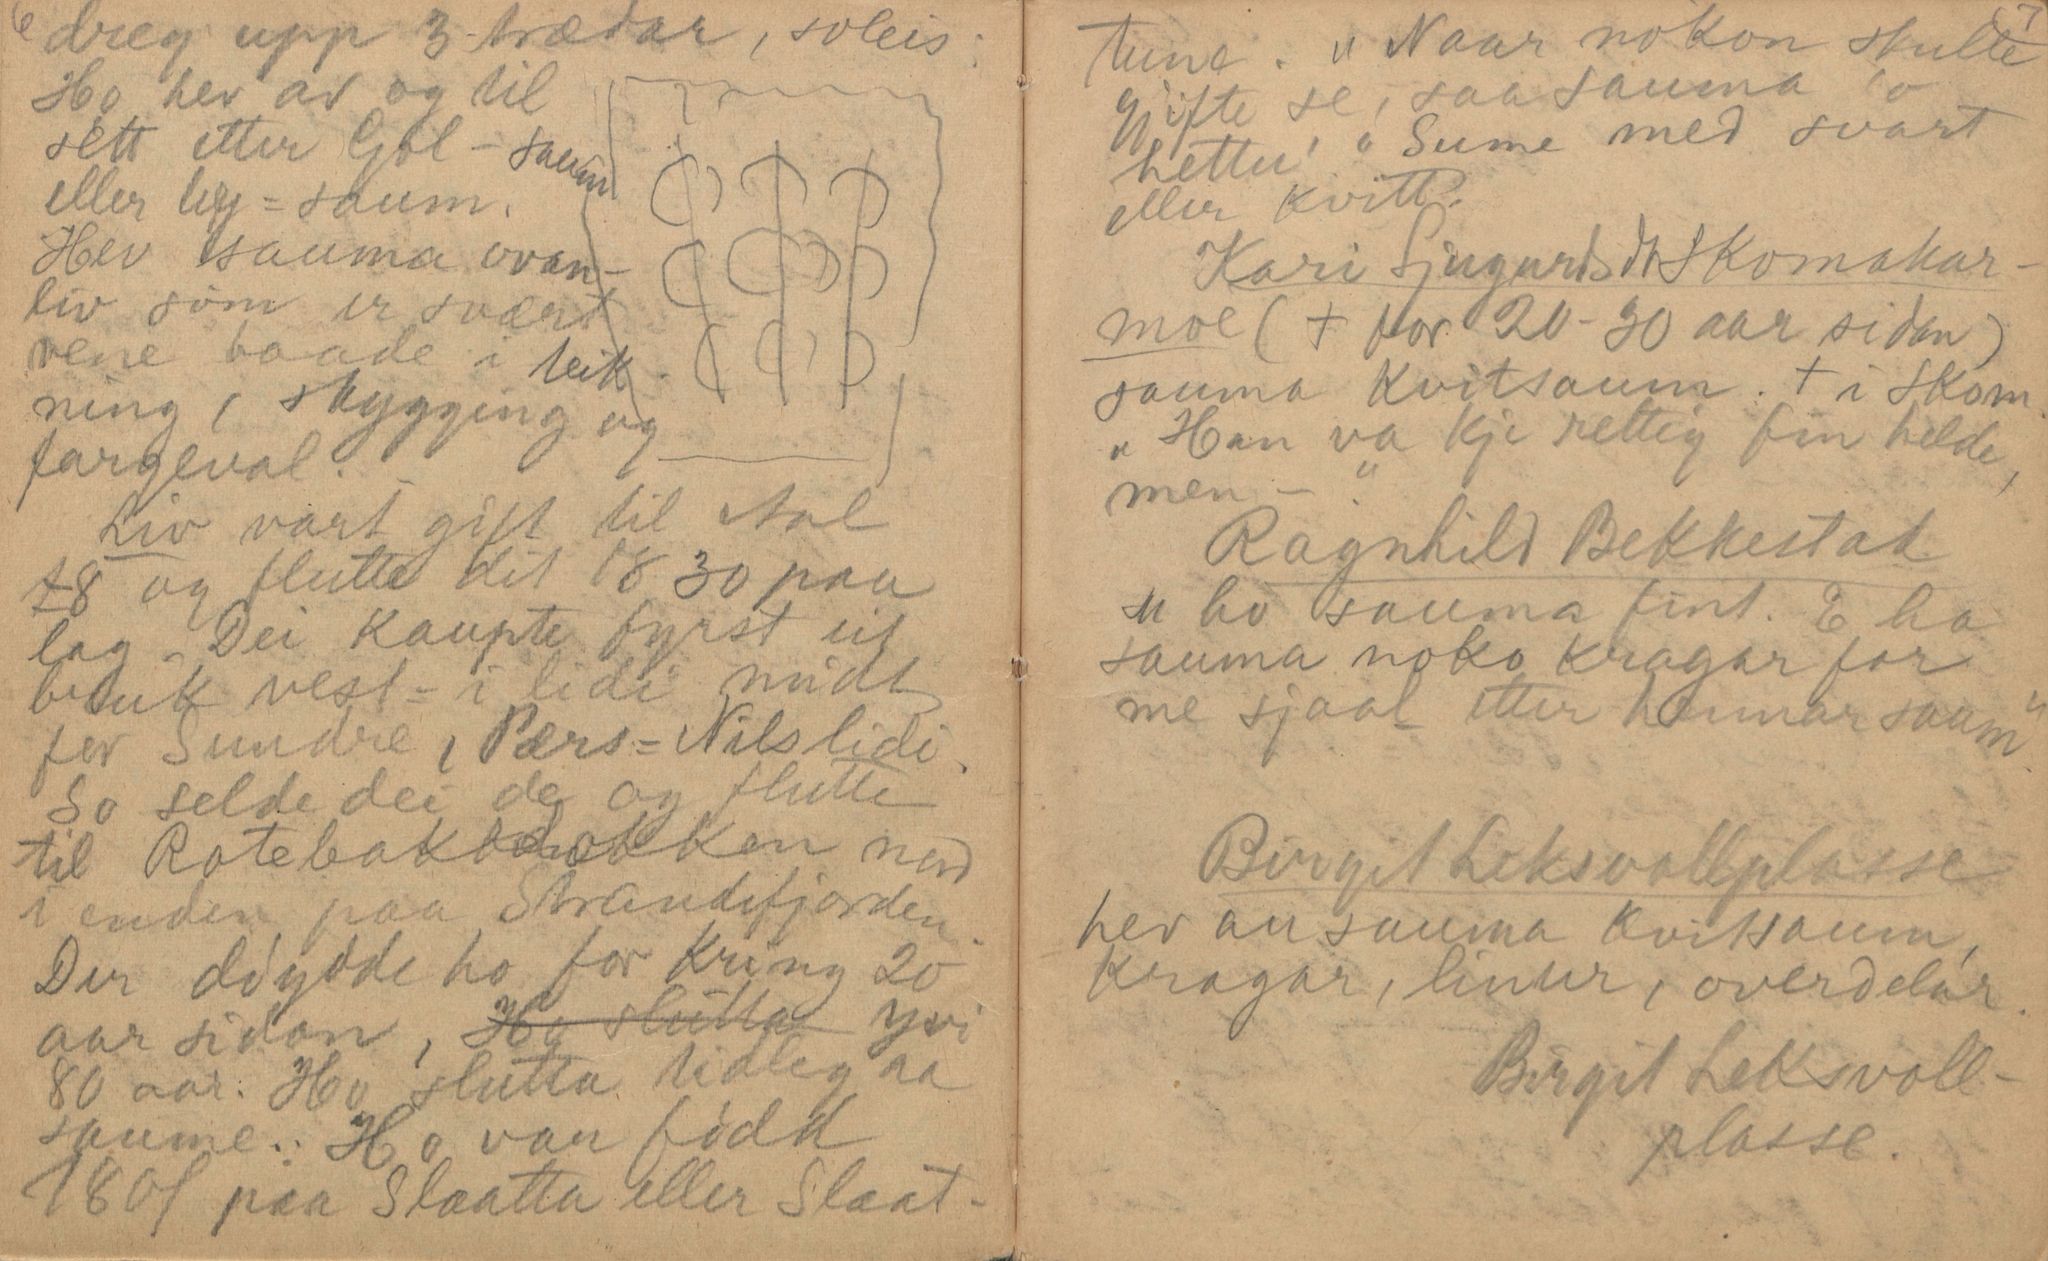 6
dreg upp 3 trædar, soleis:
Ho hev av og til
sett etter Gol-saum
eller lign=saum.
Hev sauma ovan-
liv som er svært
vene baade i teik-
ning, skygging og
fargeval.
Liv vart gift til Aal
28 og flutte dit 1830 paa
lag. Dei kaupte fyrst eit
bruk vest-i lidi midt
for Sundre, Pers=Nilslidi.
So selde dei de og flutte
til Rotebakken ned
i enden paa Strandefjorden.
Der døydde ho for kring 20
aar sidan, Ho slutta yvi
80 aar. Ho slutta tidleg aa
saume. Ho var fødd
1801 paa Slaatta eller Slaat-
7
tune. "Naar nokon skulle
gjifte se, saa sauma 'o
hettu", "Sume med svart
eller kvitt".
Kari Sjugurdsdtr Skomakar-
moe († for 20-30 aar sidan)
sauma kvitsaum. † i Skom.
"Han va kje rettig fin helde,
men-".
Ragnhild Bekkestad
"ho sauma fint. E ha
sauma noko kragar for
me sjaal etter hennar saum".
Birgit Leksvollplasse
hev au sauma kvitsaum,
kragar, linur, overdelar.
Birgit Leksvoll-
plasse.